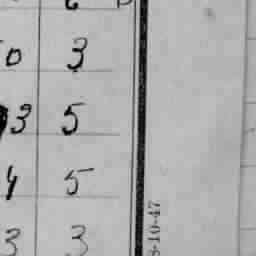 0 3
3 5
4 5
3 3
8-10-47